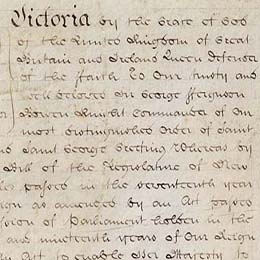 Victoria by the Grace of God
of the United Kingdom of Great
Britain and Ireland Queen Defender
of the Faith To Our trusty and
well beloved Sir George Ferguson
Bowen Knight Commander of Our
most distinguished Order of Saint
and Saint George Greeting Whereas by
Bill of the Legislature of New
Wales passed in the seventeenth year
Reign as amended by an Act passed
Session of Parliament holden in the
and nineteenth years of Our Reign
An Act to enable Her Majesty to